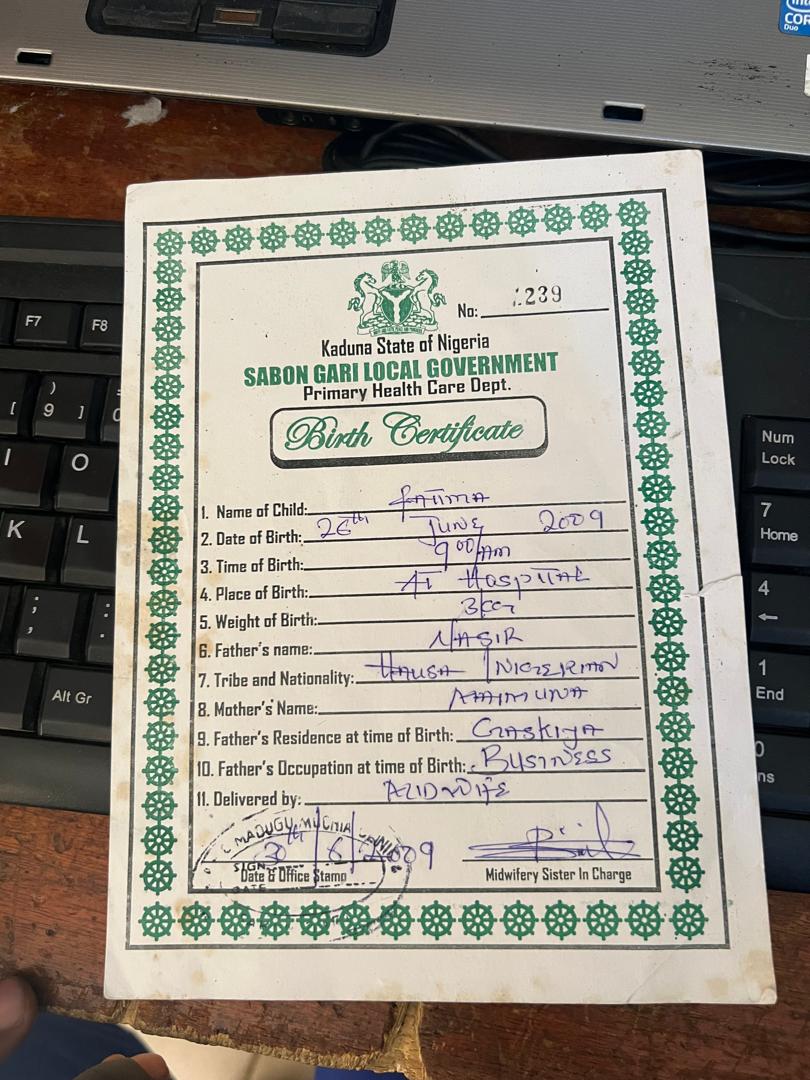 intel
CORE
Duo
F7
F8
)
9 ]
[
I
O
K
L
:
;
Alt Gr
Num
Lock
7
Home
4
←
1
End
0
ns
No: 1239
Kaduna State of Nigeria
SABON GARI LOCAL GOVERNMENT
Primary Health Care Dept.
Birth Certificate
1. Name of Child: FATIMA
2. Date of Birth: 26th JUNE 2009
3. Time of Birth: 9 00/AM
4. Place of Birth: AT HOSPITAL
5. Weight of Birth: 3KG
6. Father's name: NASIR
7. Tribe and Nationality: HAUSA / NIGERIAN
8. Mother's Name: MAIMUNA
9. Father's Residence at time of Birth: GASKIYA
10. Father's Occupation at time of Birth: BUSINESS
11. Delivered by: MIDWIFE
MADUGU MUCHIA
SIGN
DATE
30th/6/2009
Date & Office Stamp
Midwifery Sister In Charge